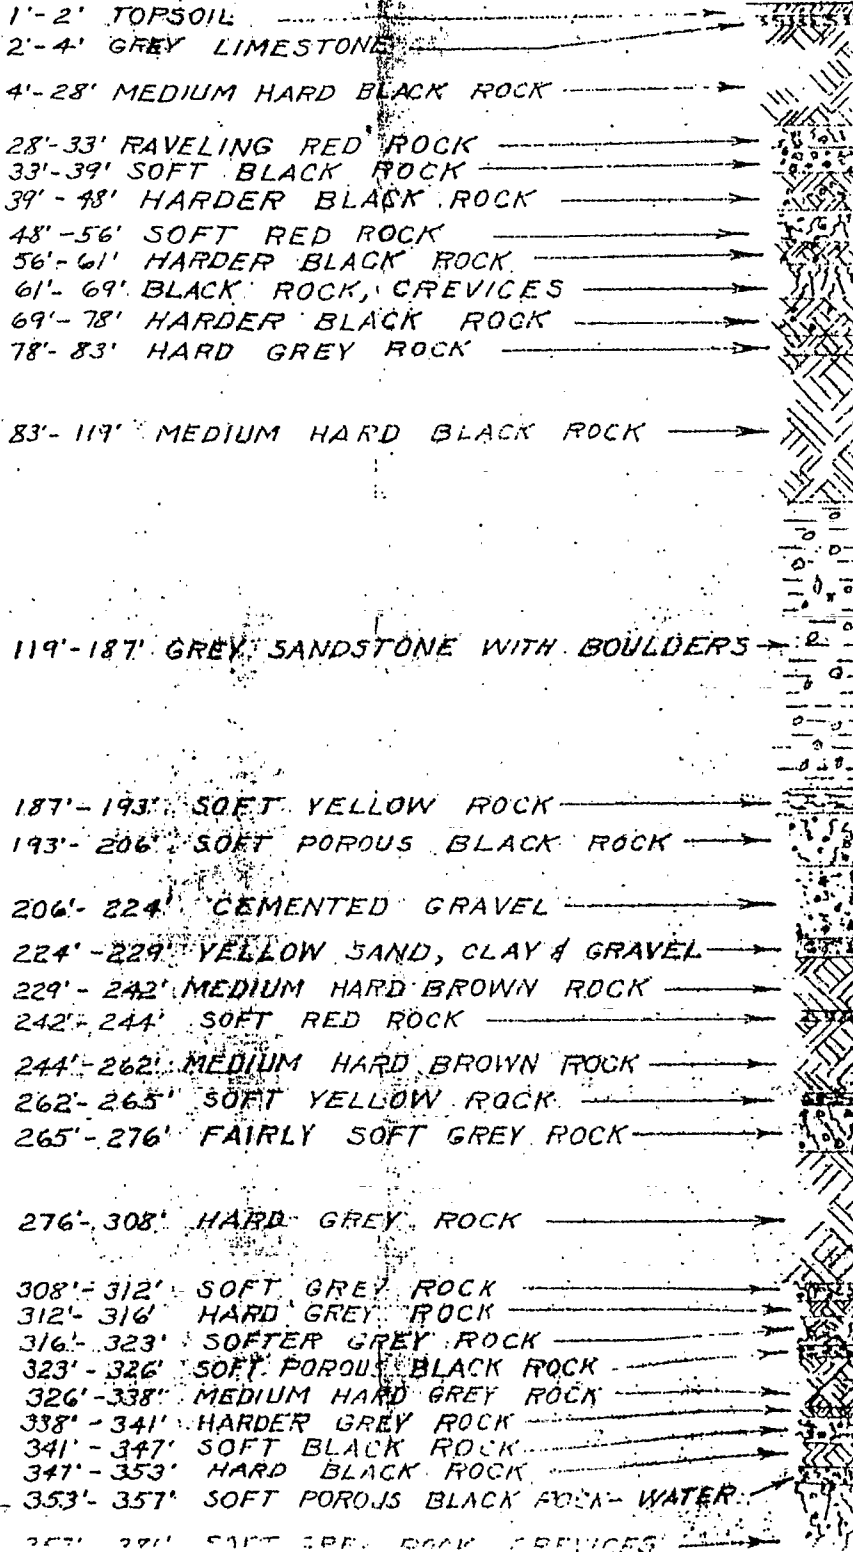 1'-2' TOPSOIL
2'-4' GREY LIMESTONE
4'-28' MEDIUM HARD BLACK ROCK
28'-33' RAVELING RED ROCK
33'-39' SOFT BLACK ROCK
39'-48' HARDER BLACK ROCK
48'-56' SOFT RED ROCK
56'-61' HARDER BLACK ROCK
61'-69' BLACK ROCK, CREVICES
69'-78' HARDER BLACK ROCK
78'-83' HARD GREY ROCK
83'-119' MEDIUM HARD BLACK ROCK
119'-187' GREY SANDSTONE WITH BOULDERS
187'-193' SOFT YELLOW ROCK
193'-206' SOFT POROUS BLACK ROCK
206'-224' CEMENTED GRAVEL
224'-229' YELLOW SAND, CLAY & GRAVEL
229'-242' MEDIUM HARD BROWN ROCK
242'-244' SOFT RED ROCK
244'-262' MEDIUM HARD BROWN ROCK
262'-265' SOFT YELLOW ROCK
265'-276' FAIRLY SOFT GREY ROCK
276'-308' HARD GREY ROCK
308'-312' SOFT GREY ROCK
312'-316' HARD GREY ROCK
316'-323' SOFTER GREY ROCK
323'-326' SOFT POROUS BLACK ROCK
326'-338' MEDIUM HARD GREY ROCK
338'-341' HARDER GREY ROCK
341'-347' SOFT BLACK ROCK
347'-353' HARD BLACK ROCK
353'-357' SOFT POROUS BLACK ROCK - WATER
SOFT GREY ROCK CREVICES